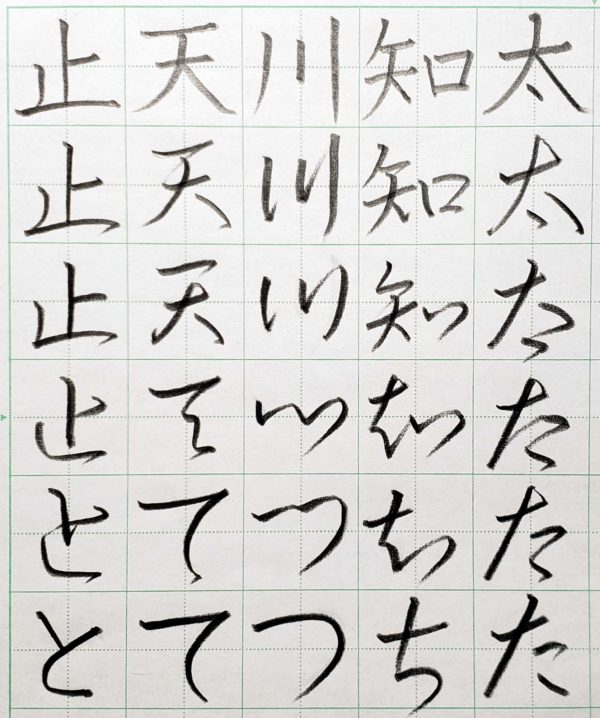 太太た た た た
知知知知ち ち
川川川川つつ
天天天てて て
止止止止とと